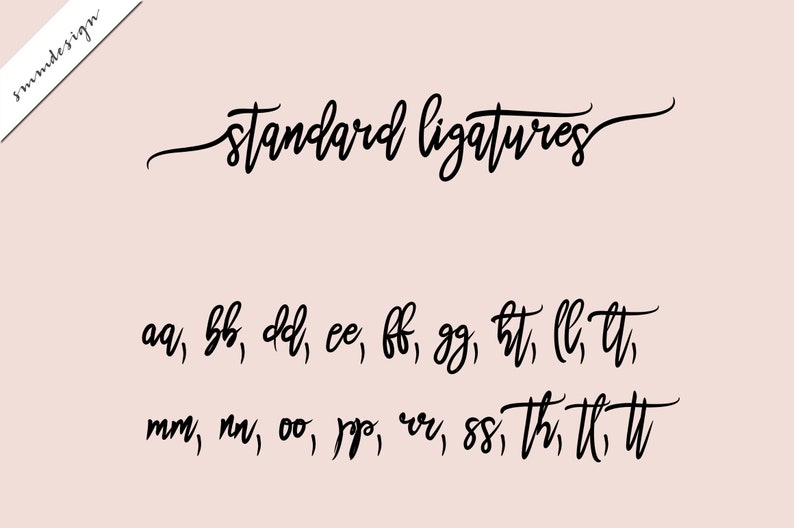 smmdesign
standard ligatures
aa, bb, dd, ee, ff, gg, ht, ll, lt,
mm, nn, oo, pp, rr, ss, th, tl, tt